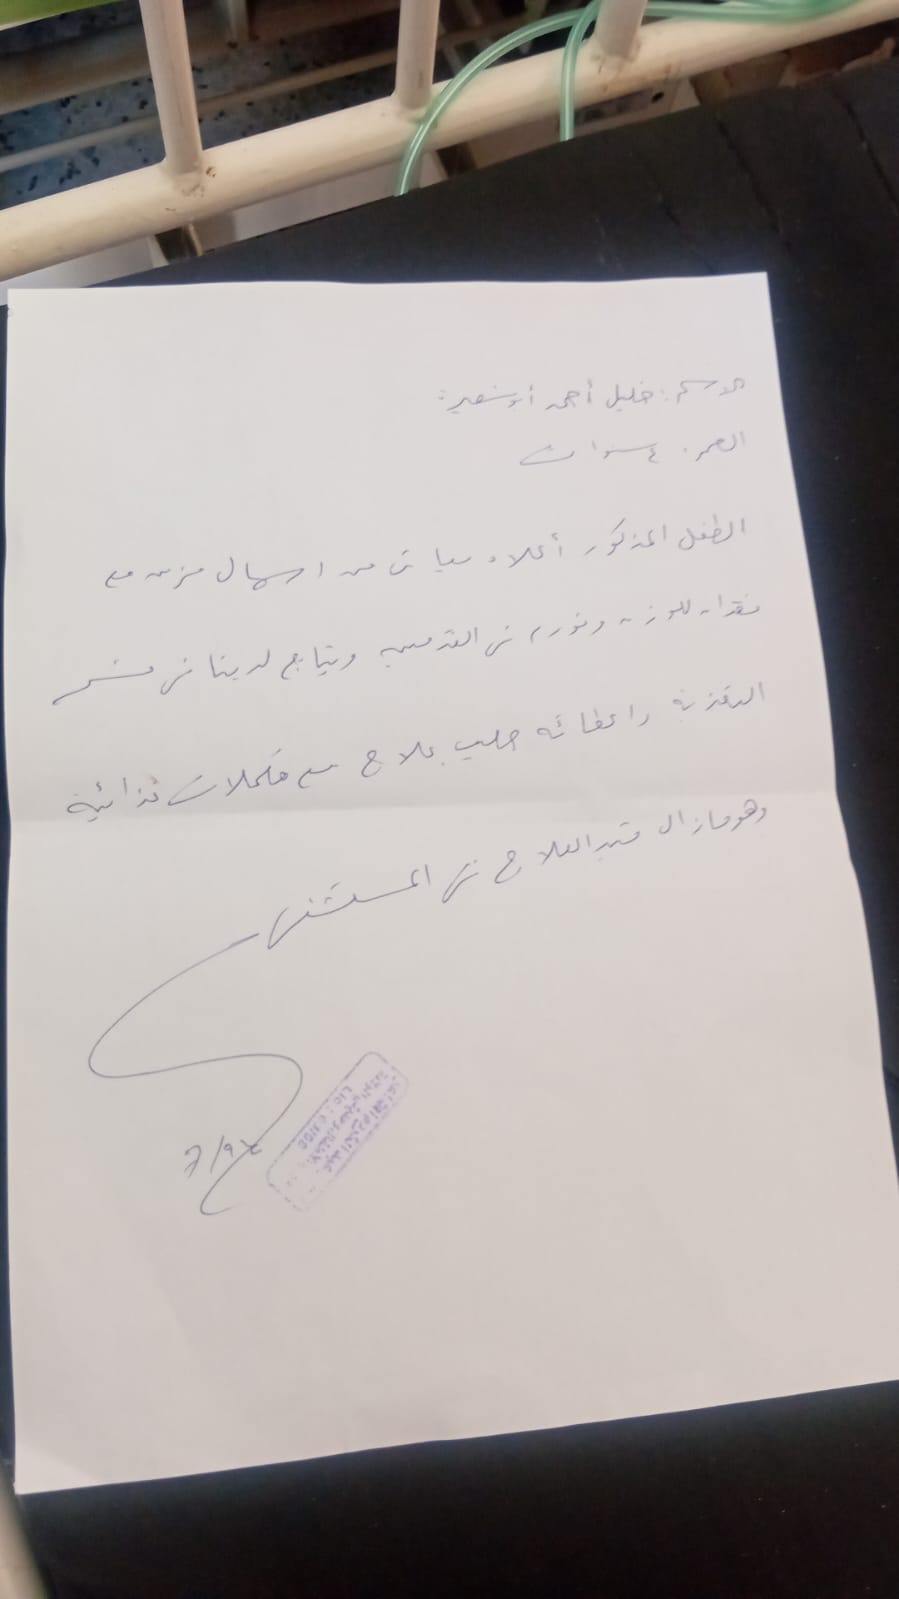 الاسم: خليل أحمد أبو شعيرة
العمر: ٤ سنوات
الطفل المذكور أعلاه يعاني من اسهال مزمن مع
فقدان للوزن وتورم في القدمين ويتابع لدينا في قسم
التغذية واعطائه حليب علاج مع مكملات غذائية
وهو مازال قيد العلاج في المستشفى